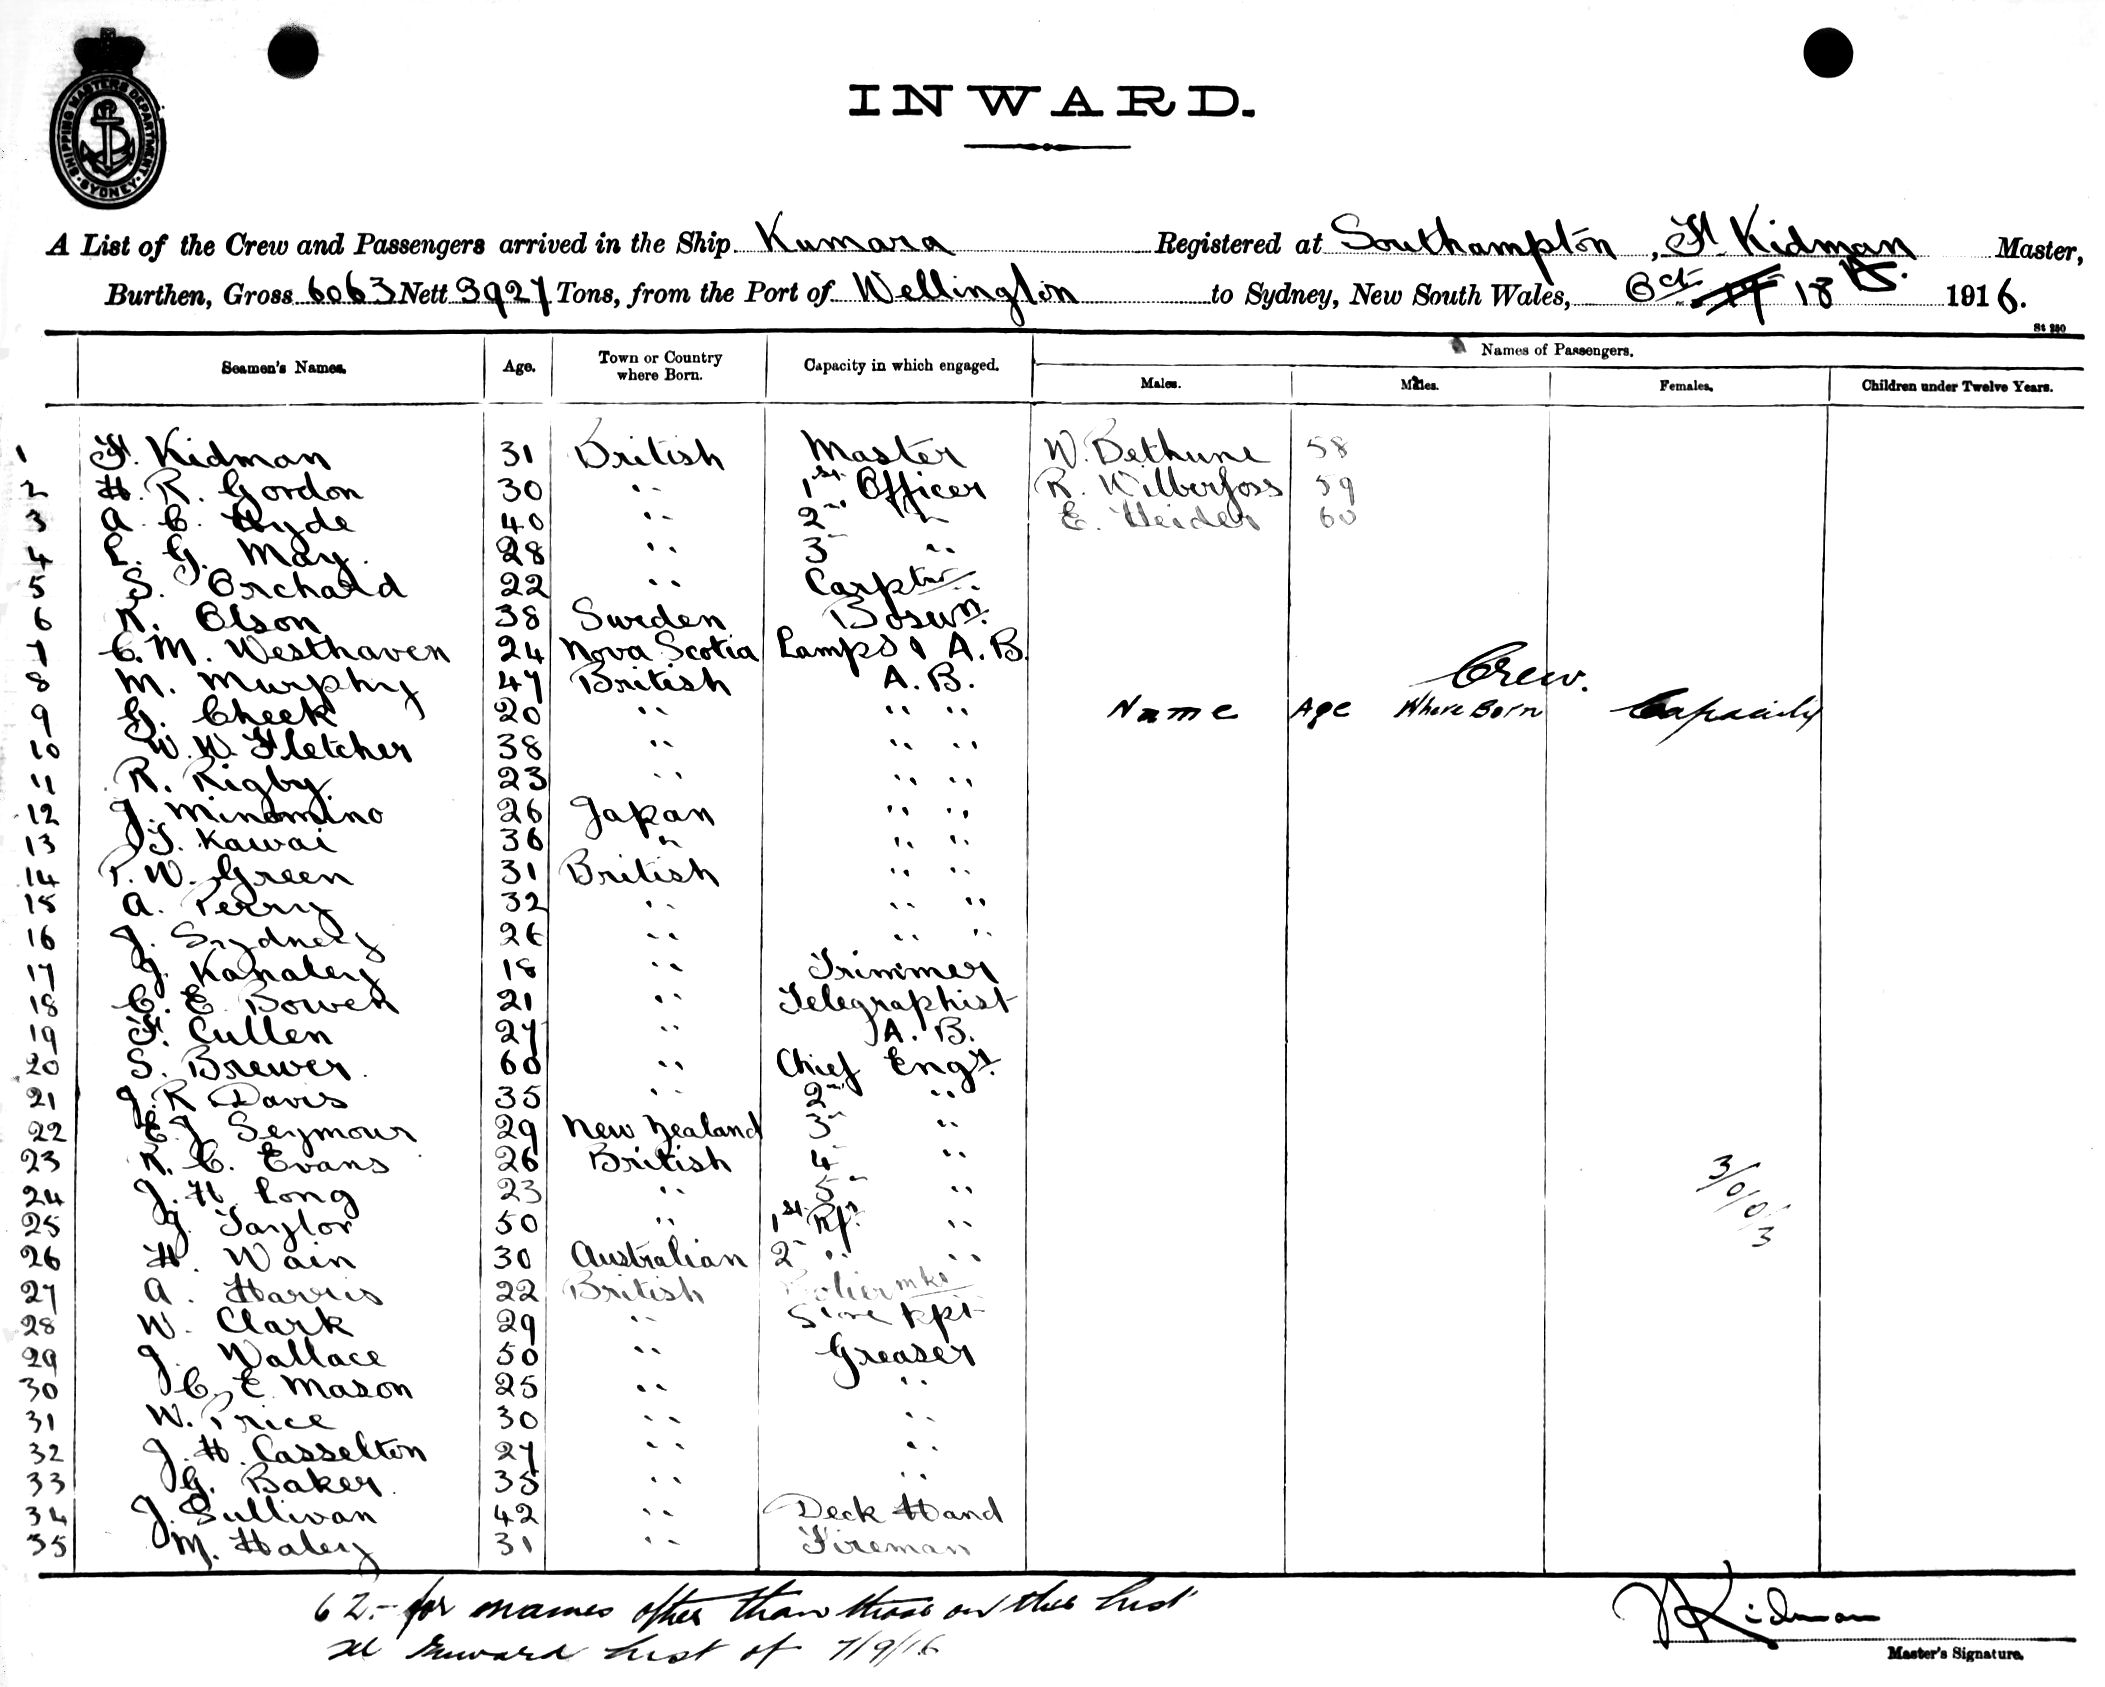 SHIPPING MASTERS DEPARTMENT SYDNEY
INWARD.
A List of the Crew and Passengers arrived in the Ship Kumara Registered at Southampton, F. Kidman Master,
Burthen, Gross 6063 Nett 3927 Tons, from the Port of Wellington to Sydney, New South Wales, Oct 18 1916.
St 250
Seamen's Names. Age. Town or Country where Born. Capacity in which engaged. Names of Passengers.
Males. Males. Females. Children under Twelve Years.
1 F. Kidman 31 British Master W. Bethune 58
2 H. R. Gordon 30 " 1st Officer R. Wilberfoss 59
3 A. C. Hyde 40 " 2nd " E. Heider 60
4 L. G. May 28 " 3 "
5 S. Orchard 22 " Carptnr
6 R. Olson 38 Sweden Boswn.
7 C. M. Westhaven 24 Nova Scotia Lamps & A.B.
8 M. Murphy 47 British A.B.
Crew.
9 G. Cheek 20 " " " Name Age Where Born Capacity
10 W. W. Fletcher 38 " " "
11 R. Rigby 23 " " "
12 J. Minamino 26 Japan " "
13 T. Kawai 36 " " "
14 P. W. Green 31 British " "
15 A. Perry 32 " " "
16 J. Sydney 26 " " "
17 J. Kanaley 18 " Trimmer
18 C. E. Bowen 21 " Telegraphist
19 F. Cullen 27 " A. B.
20 S. Brewer 60 " Chief Engr.
21 J. R. Davis 35 " 2nd "
22 E. J. Seymour 29 New Zealand 3 "
23 R. C. Evans 26 British 4 "
24 J. H. Long 23 " 5 "
25 J. Taylor 50 " 1st Rfr. "
26 H. Wain 30 Australian 2 " "
27 A. Harris 22 British Boliermkr
28 W. Clark 29 " Store kpr
29 J. Wallace 50 " Greaser
30 C. E. Mason 25 " "
31 W. Price 30 " "
32 J. H. Casselton 27 " "
33 G. Baker 35 " "
34 J. Sullivan 42 " Deck Hand
35 M. Haley 31 " Fireman
3/0/0/3
62.- for names other than those on this List
see Inward List of 7/9/16
F Kidman
Master's Signature.